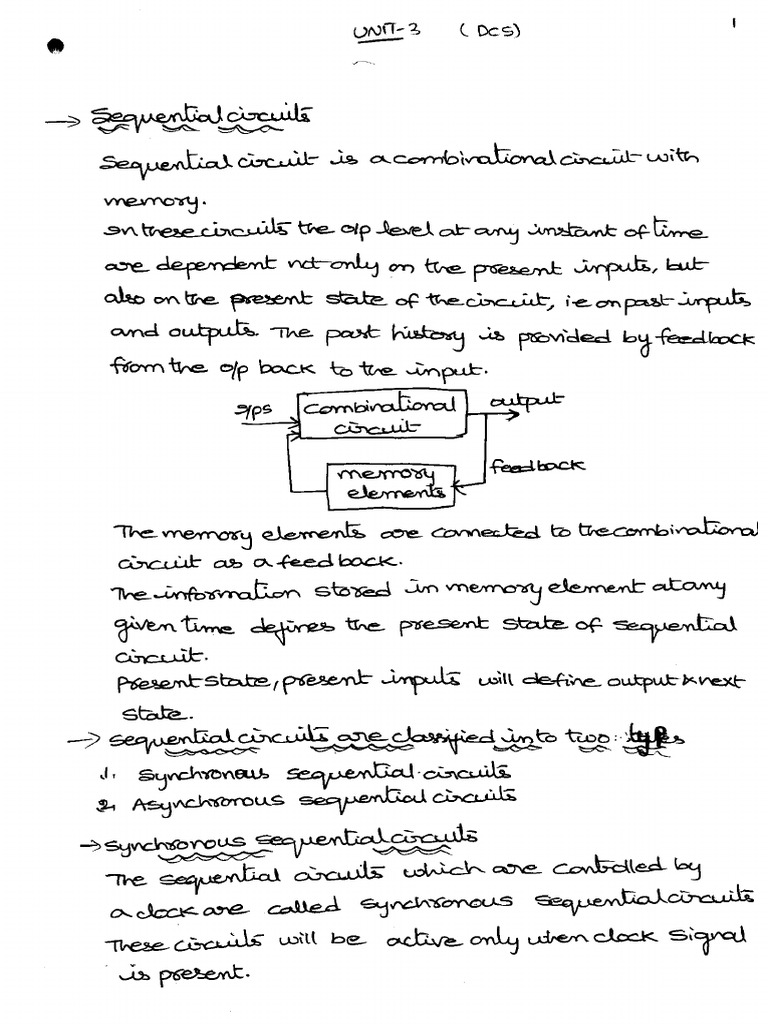 UNIT-3 (DCS)
1
→ Sequential circuits
Sequential circuit is a combinational circuit with
memory.
In these circuits the o/p level at any instant of time
are dependent not only on the present inputs, but
also on the present state of the circuit, i.e on past inputs
and outputs. The past history is provided by feedback
from the o/p back to the input.
I/ps
combinational
circuit
output
memory
elements
feedback
The memory elements are connected to the combinational
circuit as a feedback.
The information stored in memory element at any
given time defines the present state of sequential
circuit.
Present state, present inputs will define output & next
state.
→ Sequential circuits are classified into two types
1. Synchronous sequential circuits
2. Asynchronous sequential circuits
→ Synchronous sequential circuits
The sequential circuits which are controlled by
a clock are called synchronous sequential circuits
These circuits will be active only when clock signal
is present.